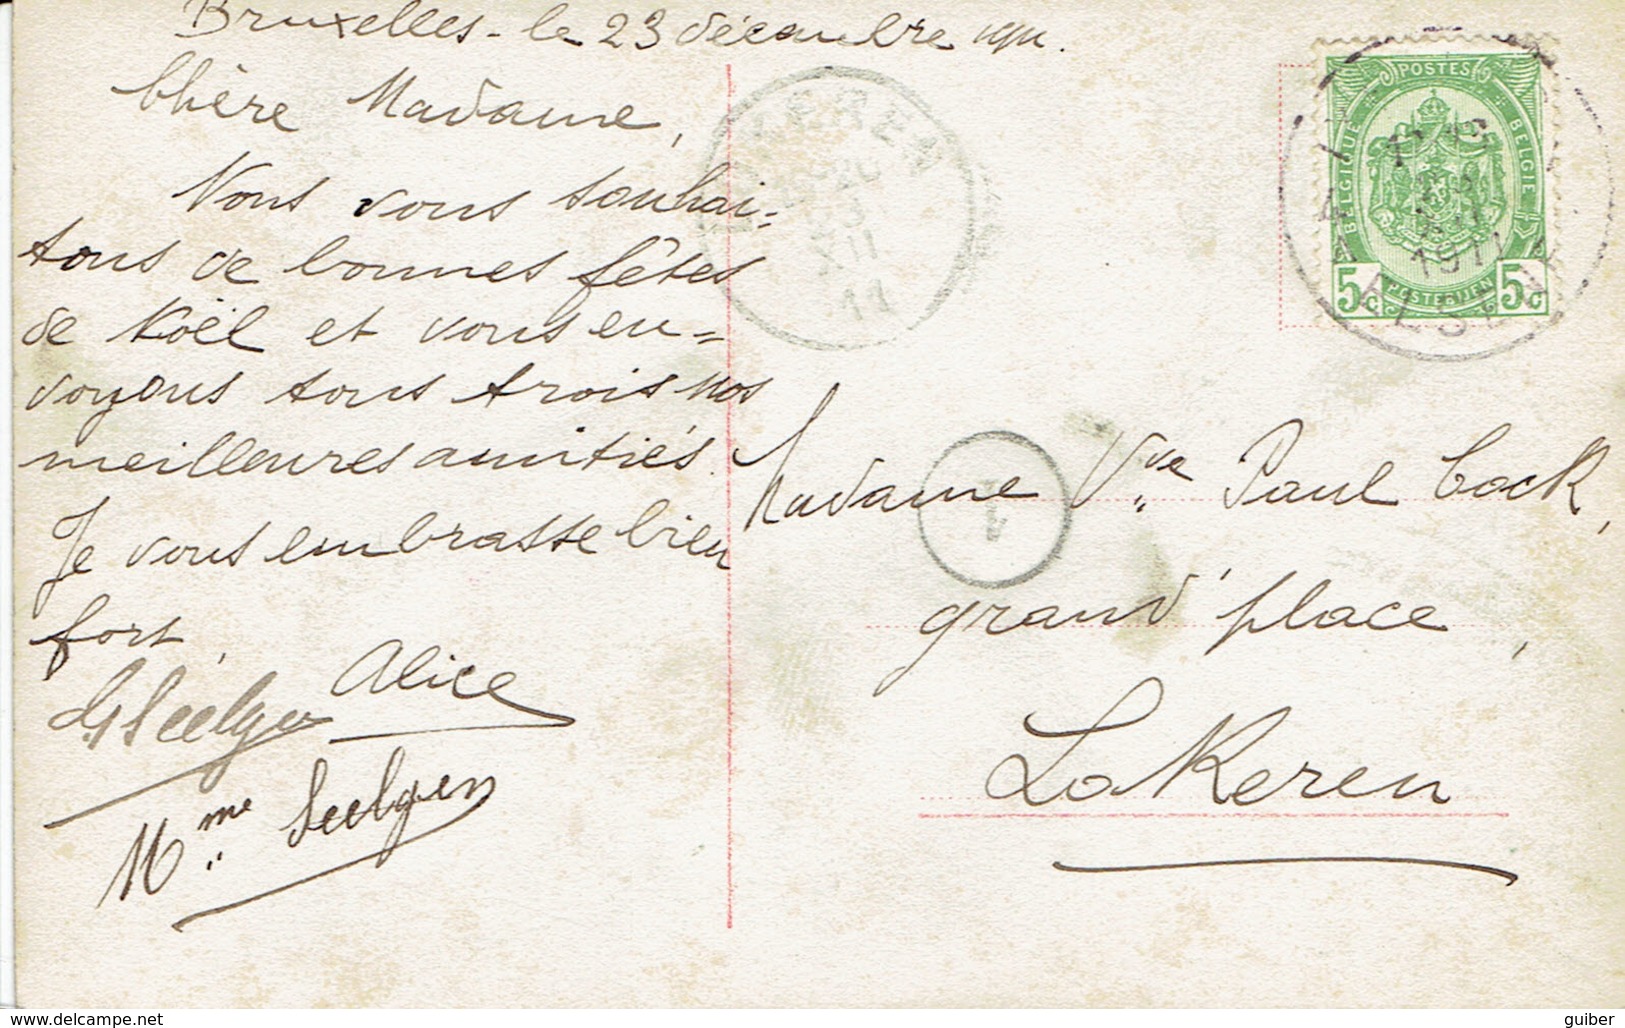 Bruxelles - le 23 décembre 1911.
Chère Madame,
Nous vous souhai-
tons de bonnes fêtes
de Noël et vous en-
voyons tous trois nos
meilleures amitiés.
Je vous embrasse bien
fort,
Alice
G Seelgen
Mme Seelgen
LOKEREN
23
XII
11
1
POSTES
BELGIQUE
BELGIE
5c
POSTERIJEN
5c
1911
Madame Vve Paul Cock,
grand'place,
Lokeren
delcampe.net
guiber